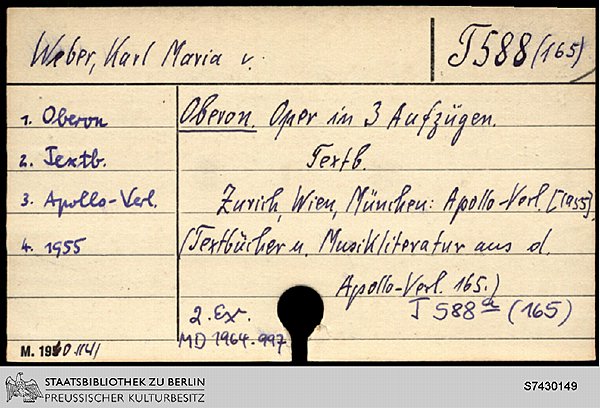 Weber, Karl Maria v.
T 588 (165)
1. Oberon
2. Textb.
3. Apollo-Verl.
4. 1955
Oberon. Oper in 3 Aufzügen.
Textb.
Zürich, Wien, München: Apollo-Verl. [1955].
(Textbücher u. Musikliteratur aus d.
Apollo-Verl. 165.)
2. Ex. T 588 a (165)
MD 1964.997
STAATSBIBLIOTHEK ZU BERLIN
PREUSSISCHER KULTURBESITZ
S7430149